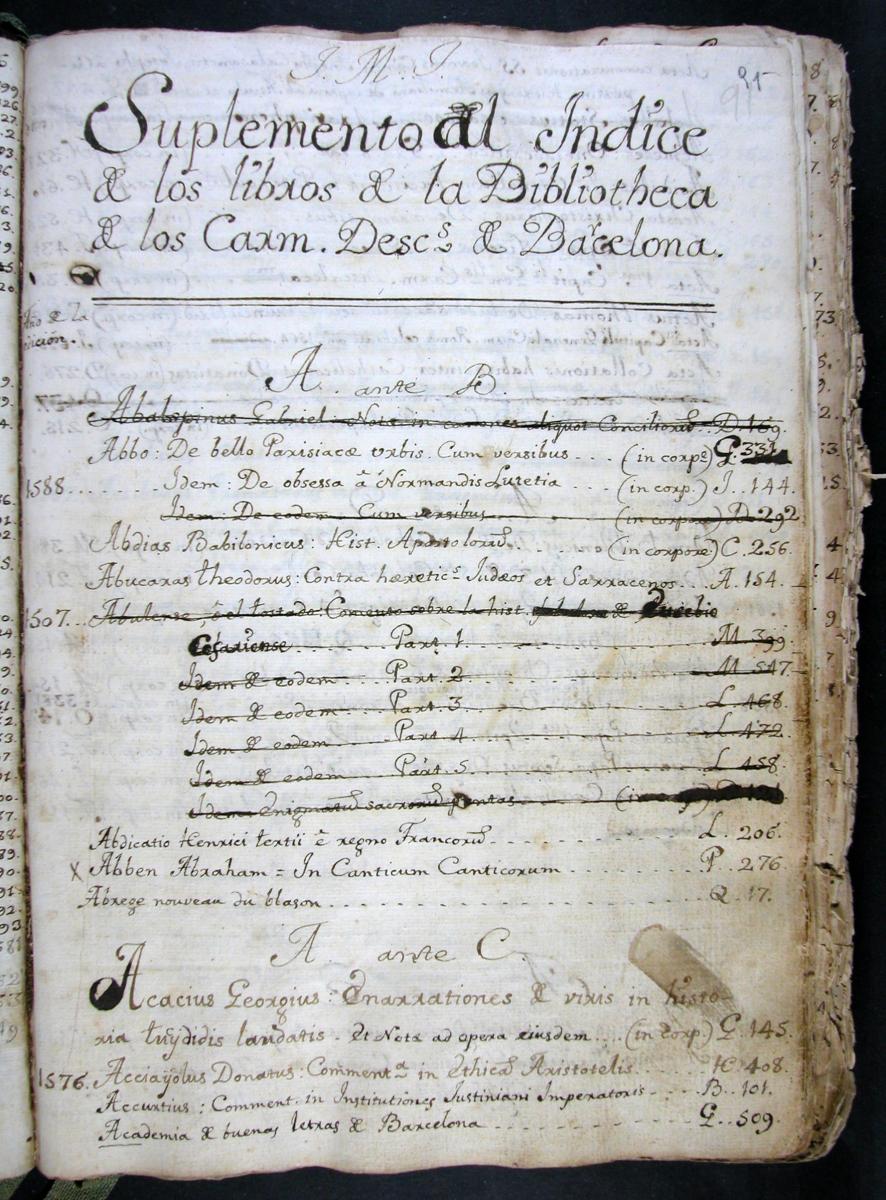 J. M. J.
91
Suplemento al Indice
de los libros de la Bibliotheca
de los Carm. Descs. de Barcelona.
Año de la
edición.
A. ante B
Abalospinus Gabriel Notæ in canones aliquot Conciliorũ. D. 169.
Abbo: De bello Parisiacæ urbis. Cum versibus ... (in corpe) G. 331
1588. Idem: De obsessa â Normandis Lutetia ... (in corp.) J. 144.
Idem: De eodem. Cum versibus (in corpore) D. 292
Abdias Babilonicus: Hist. Apostolorũ. (in corpore) C. 256.
Abucaras theodorus: Contra heretics. Judæos et Sarracenos. A. 154.
1507. Abulense, ò el tostado: Comento sobre la hist. de Eusebio
Cesariense Part. 1. M 399
Idem de eodem Part. 2 M 547
Idem de eodem Part. 3 L. 468
Idem de eodem Part. 4 L. 472
Idem de eodem Part. 5 L 458
Idem Enigmatũ sacrorũ pentas (in corp)
Abdicatio Henrici tertii è regno Francorũ L. 206.
X Abben Abraham = In Canticum Canticorum P. 276.
Abrege nouveau du blason Q. 17.
A ante C.
Acacius Georgius: Enarrationes de viris in histo-
ria tuydidis laudatis. Et Notæ ad opera eiusdem ... (in corp) G. 145.
1576. Acciayolus Donatus: Commenta. in Ethicã Aristotelis H. 408.
Accurtius: Comment. in Institutiones Justiniani Imperatoris B. 101.
Academia de buenas letras de Barcelona G. 509.